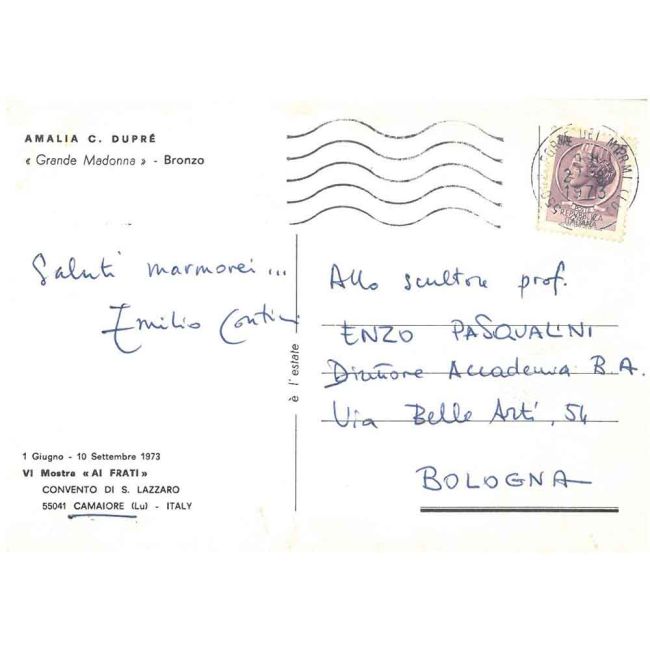 AMALIA C. DUPRÉ
« Grande Madonna » - Bronzo
Saluti marmorei...
Emilio Contini
1 Giugno - 10 Settembre 1973
VI Mostra «AI FRATI»
CONVENTO DI S. LAZZARO
55041 CAMAIORE (Lu) - ITALY
è l'estate
FORTE DEI MARMI (LU)
1973
REPUBBLICA
ITALIANA
Allo scultore prof.
ENZO PASQUALINI
Direttore Accademia B.A.
Via Belle Arti, 54
BOLOGNA